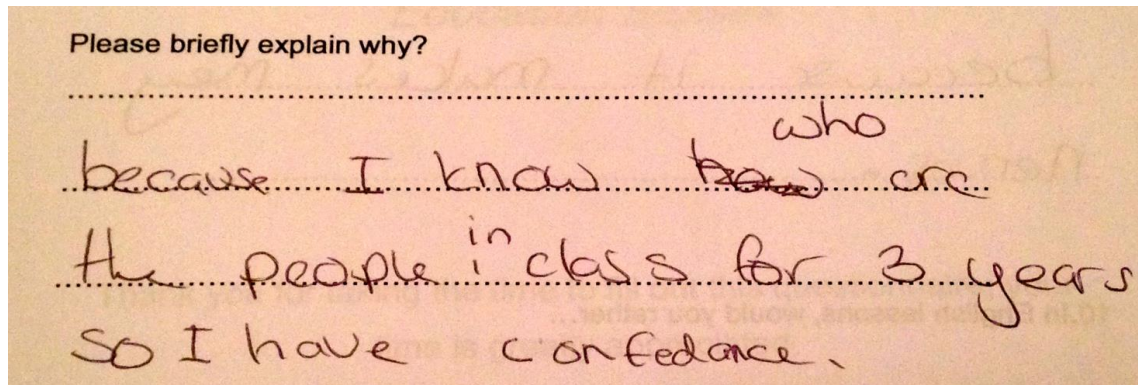 Please briefly explain why?
who
because I know how are
in
the people class for 3 years
so I have confedance.